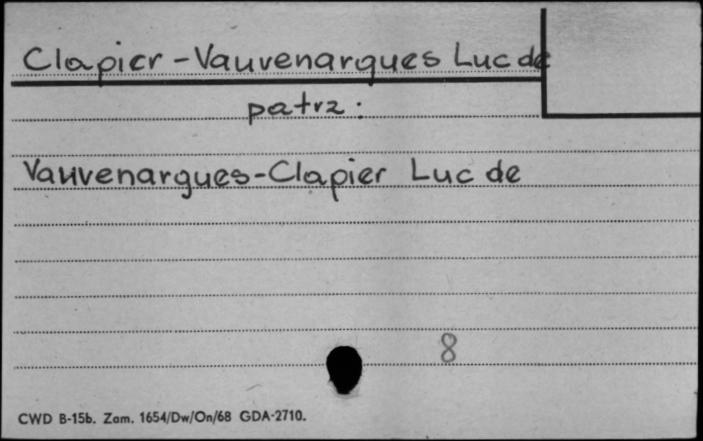 Clapier-Vauvenargues Luc de
patrz:
Vauvenargues-Clapier Luc de
8
CWD B-15b. Zam. 1654/Dw/On/68 GDA-2710.